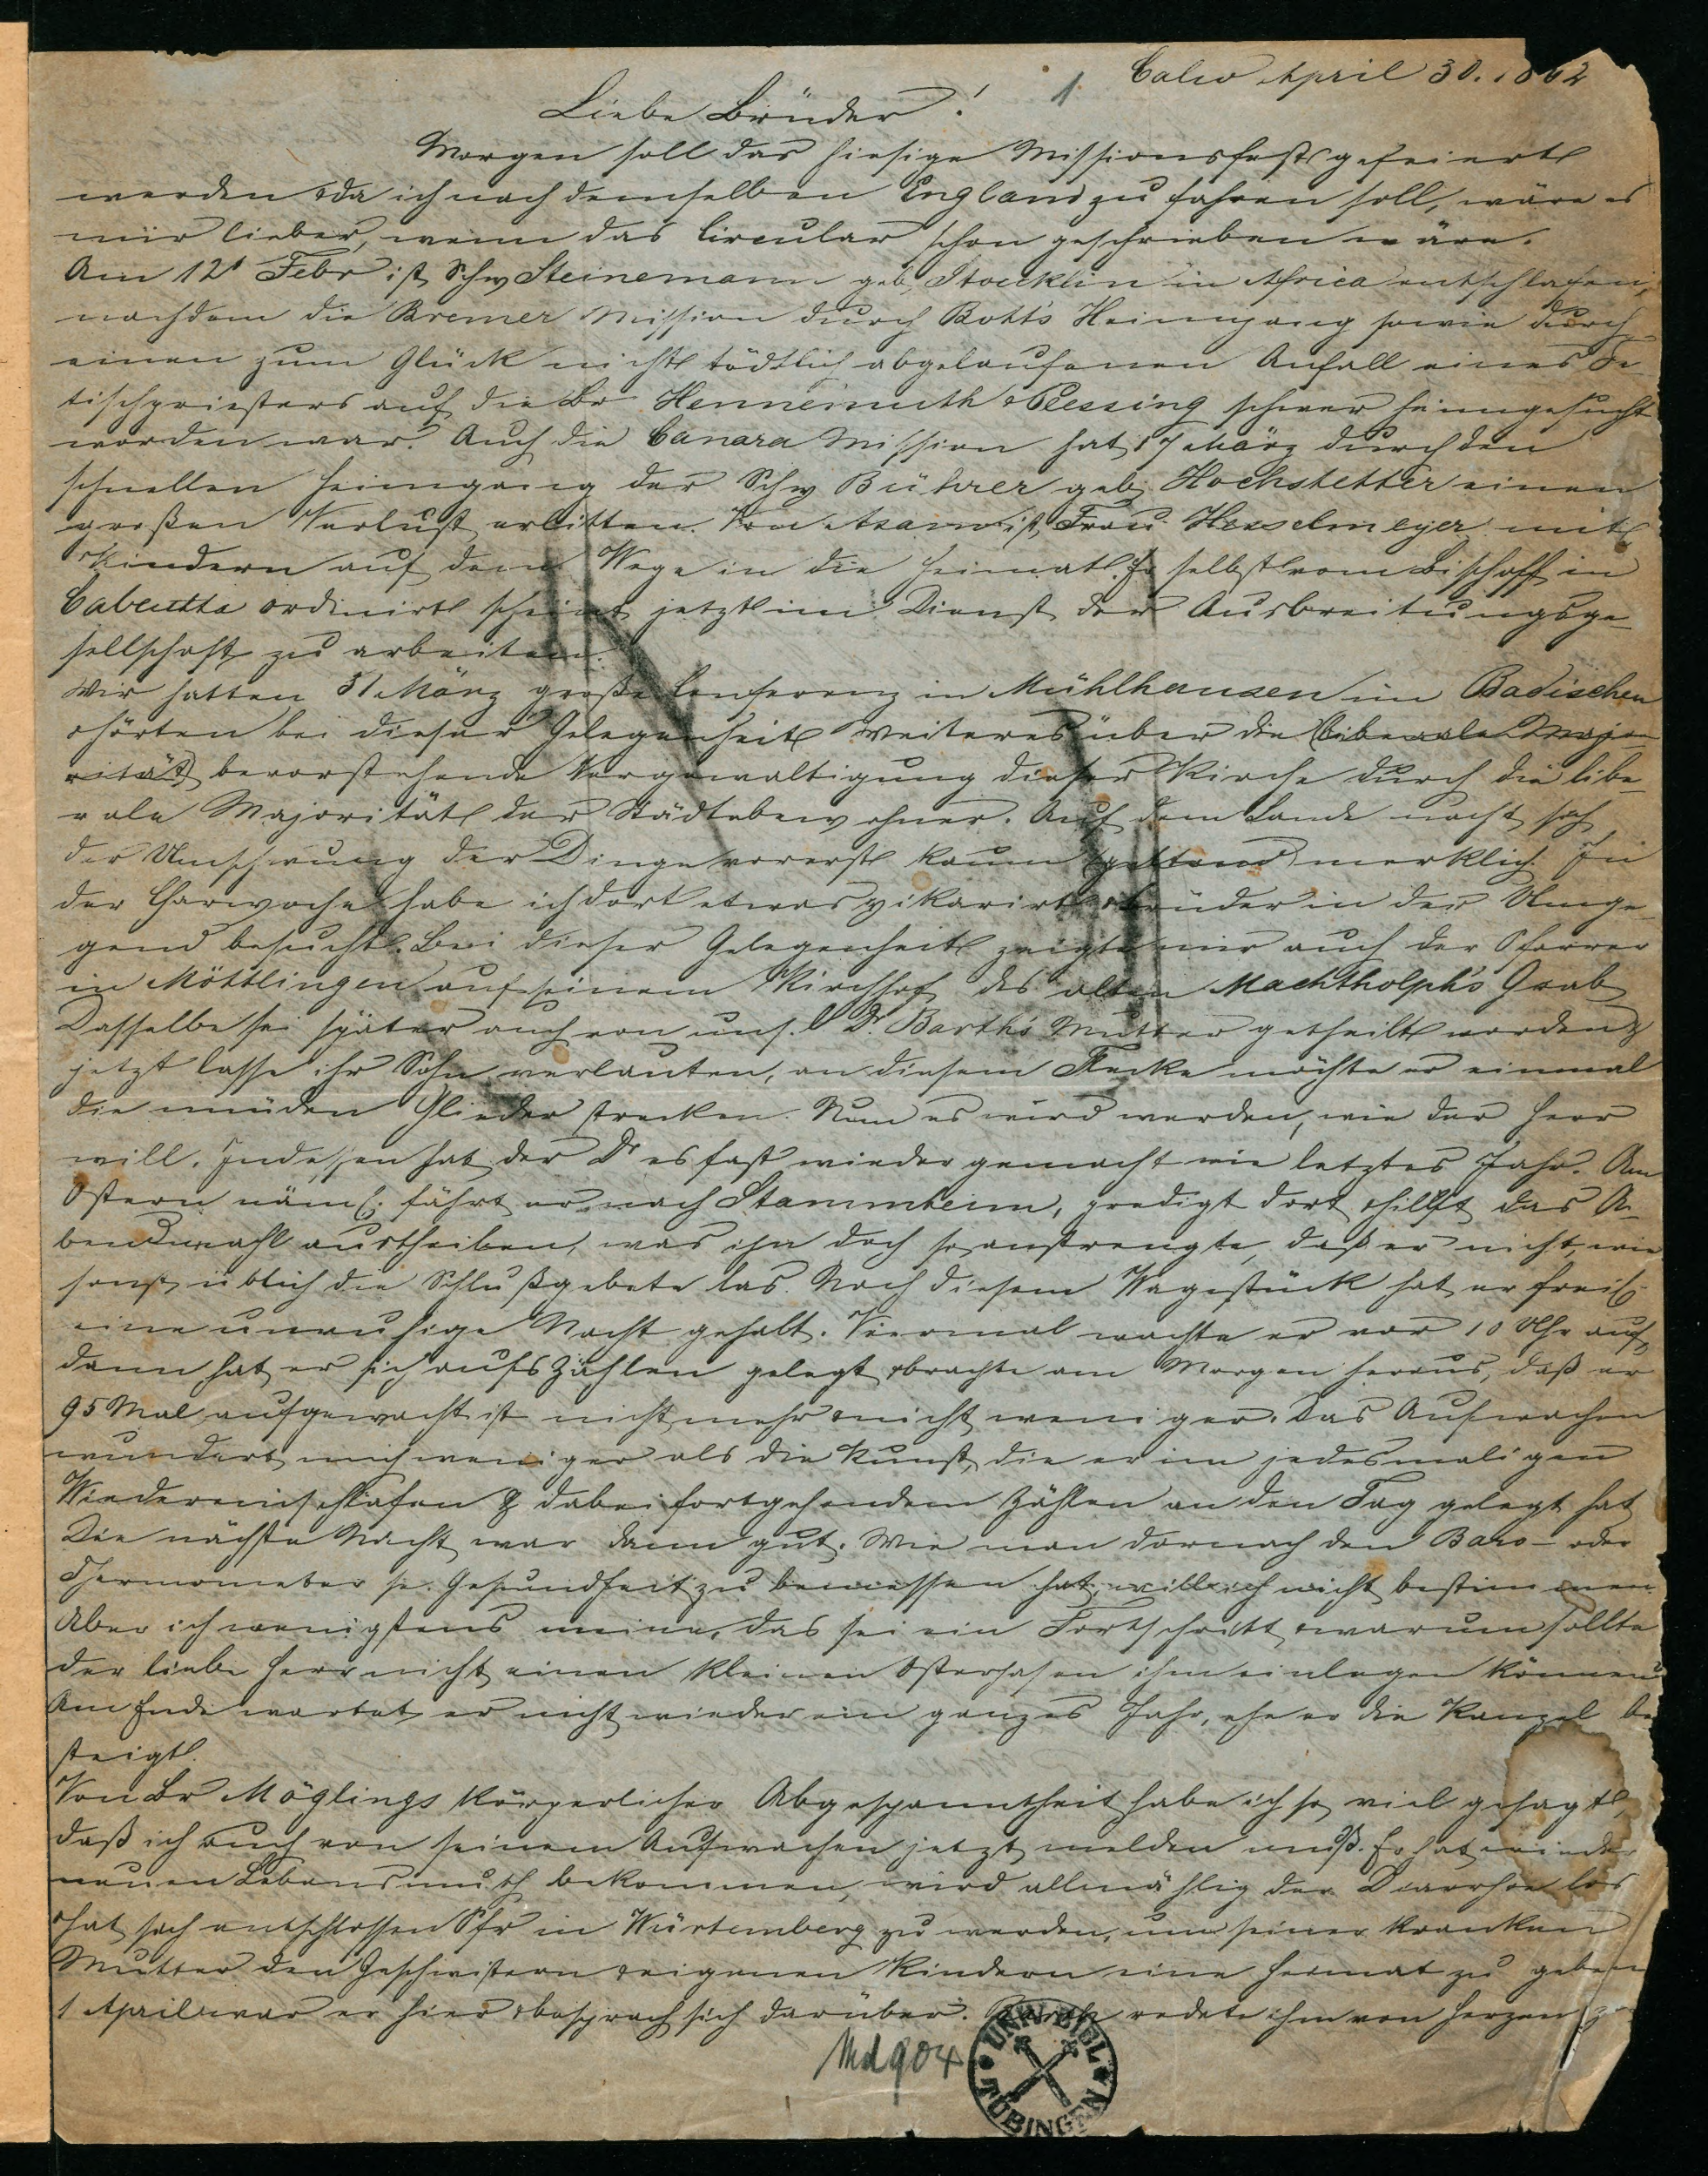 Calw April 30. 1862
1
Liebe Brüder!
Morgen soll das hiesige Missionsfest gefeiert
werden & da ich nach demselben England zu fahren soll, wäre es
mir lieber, wenn das Circular schon geschrieben wäre.
Am 12t Febr ist Schw Steinemann geb. Stoecklin in Africa entschlafen,
nachdem die Bremer Mission durch Bott's Heimgang sowie durch
einen zum Glück nicht tödtlich abgelaufenen Anfall eines Fe-
tischpriesters auf die Br Plessing schwer heimgesucht
worden war. Auch die Canara Mission hat 17 März durch den
schnellen Heimgang der Schw Bührer geb. Hochstetter einen
großen Verlust erlitten. Von Asam ist Frau Hesselmeyer mit
Kindern auf dem Wege in die Heimat. Er selbst vom Bischoff in
Calcutta ordinirt scheint jetzt im Dienst der Ausbreitungsge-
sellschaft zu arbeiten.
Wir hatten 31 März große Conferenz in Mühlhausen im Badischen
& hörten bei dieser Gelegenheit Weiteres über die (liberale Majo-
rität) bevorstehende Vergewaltigung dieser Kirche durch die libe-
rale Majorität der Städtebewohner. Auf dem Lande macht sich
der Umschwung der Dinge vorerst kaum (geltend) merklich. In
der Charwoche habe ich dort etwas vikarirt & Brüder in der Umge-
gend besucht. Bei dieser Gelegenheit zeigte mir auch der Pfarrer
in Möttlingen auf seinem Kirchhof des alten Machtholph's Grab
Dasselbe sei später auch von uns. l Dr Barth's Mutter getheilt worden &
jetzt lasse ihr Sohn verlauten, an diesem Flecke möchte er einmal
die müden Glieder strecken. Nun es wird werden, wie der Herr
will. Indessen hat der Dr es fast wieder gemacht wie letztes Jahr. Am
Ostern näml. fährt er nach Stammheim, predigt dort & hilft das A-
bendmahl austheilen, was ihn doch so anstrengte, daß er nicht, wie
sonst üblich die Schlußgebete las. Nach diesem Wagestück hat er freil.
eine unruhige Nacht gehabt. Viermal wachte er vor 10 Uhr auf,
dann hat er sich aufs Zählen gelegt & brachte am Morgen heraus, daß er
95 Mal aufgewacht ist nicht mehr & nicht weniger. Das Aufwachen
wundert mich weniger als die Kunst, die er im jedesmaligen
Wiedereinschlafen & dabei fortgehendem Zählen an den Tag gelegt hat
Die nächste Nacht war dann gut. Wie man darnach den Baro- oder
Thermometer sr. Gesundheit zu bemessen hat, will ich nicht bestimmen.
Aber ich wenigstens meine, das sei ein Fortschritt & warum sollte
der liebe Herr nicht einen kleinen Osterhasen ihm einlegen können
Am Ende wartet er nicht wieder ein ganzes Jahr, ehe er die Kanzel be
steigt.
Von Br Möglings körperlicher Abgespanntheit habe ich so viel gesagt,
daß ich auch von seinem Aufwachen jetzt melden muß. Er hat wieder
neuen Lebensmuth bekommen, wird allmählig der Diarrhoe los
& hat sich entschlossen Pfr in Würtemberg zu werden, um seiner kranken
Mutter den Geschwistern & eigenen Kindern eine Heimat zu geben
1 April war er hier & besprach sich darüber. Barth redete ihm von Herzen zu
Md 904
UNIV. BIBL.
TÜBINGEN